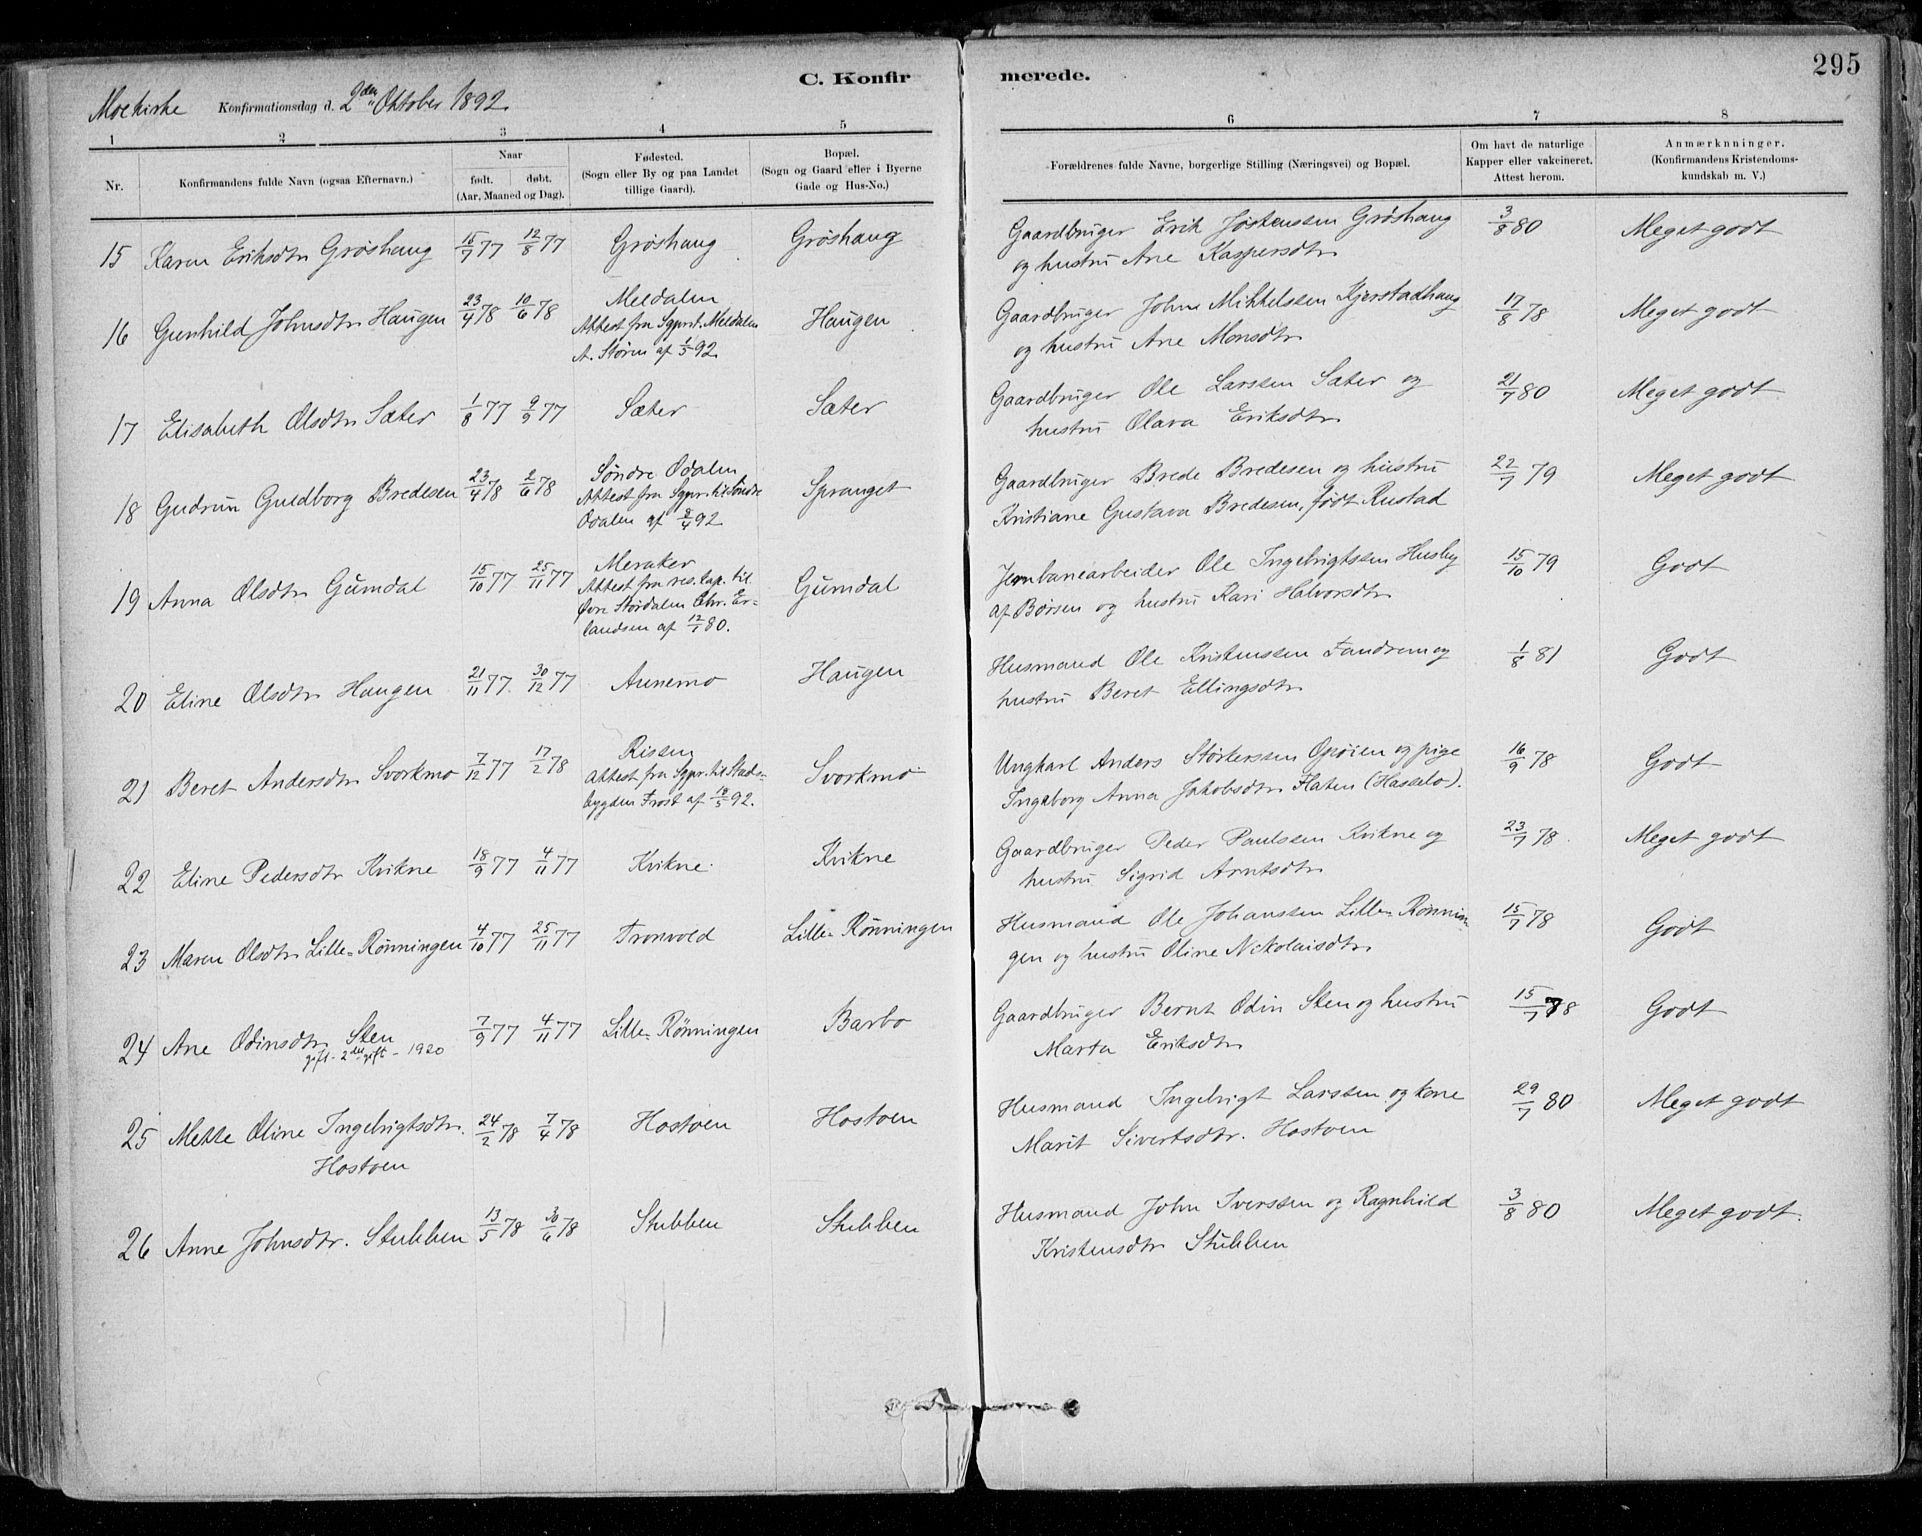 295
C. Konfirmerede.
Moe kirke Konfirmationsdag d. 2den Oktober 1892.
1 2 3 4 5 6 7 8
Nr.
Konfirmandens fulde Navn (ogsaa Efternavn.)
Naar
født. døbt.
(Aar, Maaned og Dag).
Fødested.
(Sogn eller By og paa Landet
tillige Gaard).
Bopæl.
(Sogn og Gaard eller i Byerne
Gade og Hus-No.)
Forældrenes fulde Navne, borgerlige Stilling (Næringsvei) og Bopæl.
Om havt de naturlige
Kapper eller vakcineret.
Attest herom.
Anmærknninger.
(Konfirmandens Kristendoms-
kundskab m. V.)
15 Karen Eriksdtr Gröshaug 15/7 77 12/8 77 Gröshaug Gröshaug Gaardbruger Erik Jostenssen Gröshaug 3/8 80 Meget godt
og hustru Ane Kaspersdtr
16 Gunhild Johnsdtr Haugen 23/4 78 10/6 78 Meldalen Haugen Gaardbruger John Mikkelssen Kjerstadhaug 17/8 78 Meget godt
Attest fra Sgprst. Meldalen
A. Stören af 1/5 92.
og hustru Ane Monsdtr
17 Elisabeth Olsdtr Sæter 1/8 77 9/9 77 Sæter Sæter Gaardbruger Ole Larssen Sæter og 21/7 80 Meget godt
hustru Olava Eriksdtr
18 Gudrun Guldborg Bredesen 23/4 78 2/6 78 Söndre Odalen Spranget Gaardbruger Brede Bredesen og hustru 22/7 79 Meget godt
Attest fra Sgpr. til Söndre
Odalen af 8/4 92
Kristiane Gustava Bredesen, født Rustad
19 Anna Olsdtr Gumdal 15/10 77 25/11 77 Meraker Gumdal Jernbanearbeider Ole Ingebrigtssen Husby 15/10 79 Godt
Attest fra res. kap. til
Övre Stördalen Chr. Er-
landsen af 12/1 80.
af Börsen og hustru Kari Halvorsdtr
20 Eline Olsdtr Haugen 21/11 77. 30/12 77 Aunemo Haugen Husmand Ole Kristenssen Fandrem og 1/8 81 Godt
hustru Beret Ellingsdtr
21 Beret Andersdtr Svorkmo 7/12 77 17/2 78 Rissen Svorkmo Ungkarl Anders Störkerssen Opöien og pige 16/9 78 Godt
Attest fra Sgpr. til Stads-
bygden Frost af 18/5 92.
Ingeborg Anna Jakobsdtr Flaten (Hasselø).
22 Eline Pedersdtr Kvikne 18/9 77 4/11 77 Kvikne Kvikne Gaardbruger Peder Paulssen Kvikne og 23/7 78. Meget godt
hustru Sigrid Arntsdtr
23 Maren Olsdtr Lille-Rönningen 4/10 77 25/11 77 Tronvold Lille-Rönningen Husmand Ole Johanssen Lille-Rönnin- 15/7 78 Godt
gen og hustru Oline Nikolaisdtr
24 Ane Odinsdtr Sten 7/9 77 4/11 77 Lille-Rönningen Barbo Gaardbruger Bernt Odin Sten og hustru 15/7 78 Godt
gift - 2den gift - 1920
Marta Eriksdtr
25 Mette Oline Ingebrigtsdtr. 24/2 78 7/4 78 Hostoen Hostoen Husmand Ingebrigt Larssen og kone 29/7 80 Meget godt
Hostoen
Marit Sivertsdtr. Hostoen
26 Anne Johnsdtr. Stubben 13/5 78 30/6 78 Stubben Stubben Husmand John Iverssen og Ragnhild 3/8 80 Meget godt.
Kristensdtr Stubben